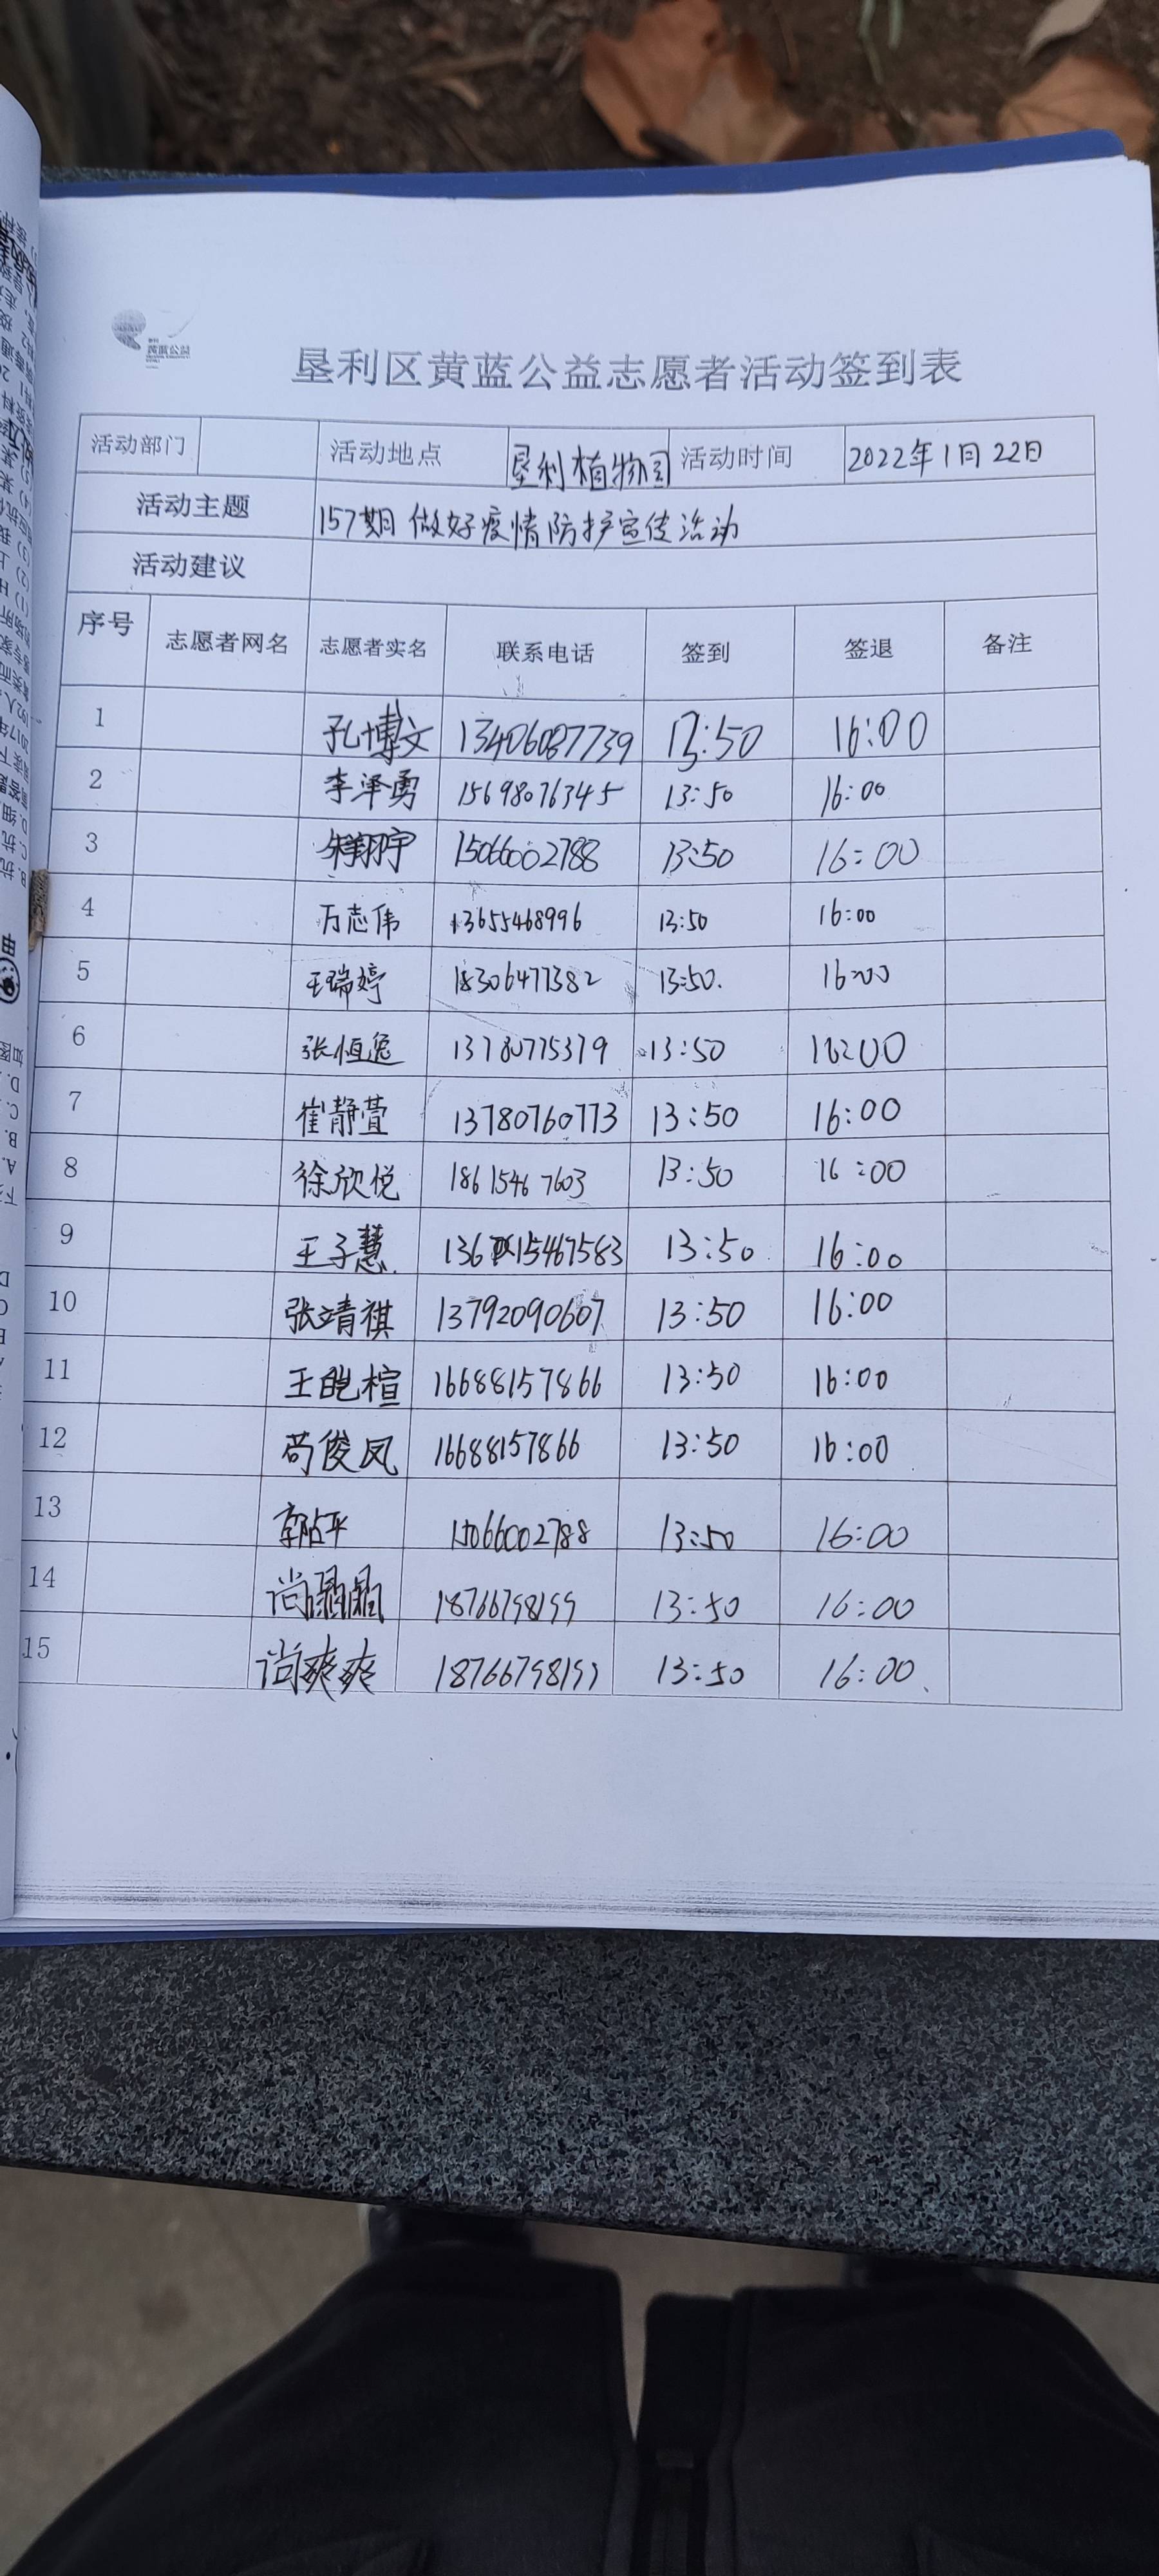 黄蓝公益
垦利区黄蓝公益志愿者活动签到表
活动部门 活动地点 垦利植物园 活动时间 2022年1月22日
活动主题 157期 做好疫情防护宣传活动
活动建议
序号 志愿者网名 志愿者实名 联系电话 签到 签退 备注
1 孔博文 13406087739 13:50 16:00
2 李泽勇 15698076345 13:50 16:00
3 朱翔宇 15066002788 13:50 16:00
4 万志伟 13655468996 13:50 16:00
5 王瑞婷 18306477382 13:50. 16:00
6 张恒逸 13780775379 13:50 16:00
7 崔静萱 13780760773 13:50 16:00
8 徐欣悦 18615467603 13:50 16:00
9 王子慧 13:50 16:00
10 张靖祺 13792090607 13:50 16:00
11 王皑楦 16688157866 13:50 16:00
12 苟俊凤 16688157866 13:50 16:00
13 15066002788 13:50 16:00
14 尚晶晶 13:50 16:00
15 尚爽爽 13:50 16:00